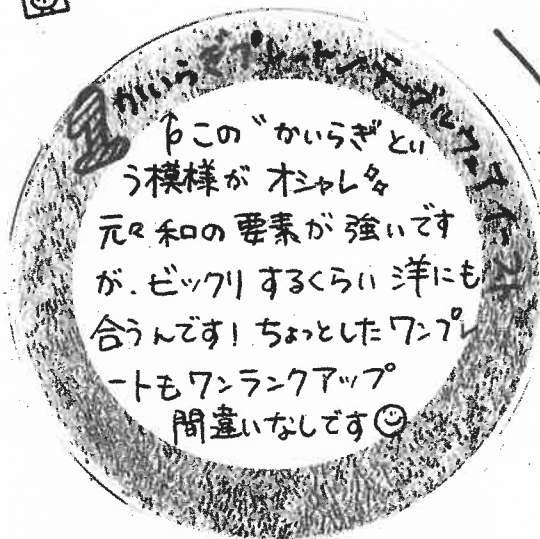 1 かいらぎプレートン テーブルウェアイースト
↑この"かいらぎ"とい
う模様が オシャレ
元々和の要素が強いです
が、ビックリするくらい洋にも
合うんです!ちょっとしたワンプレ
ートもワンランクアップ
間違いなしです☺